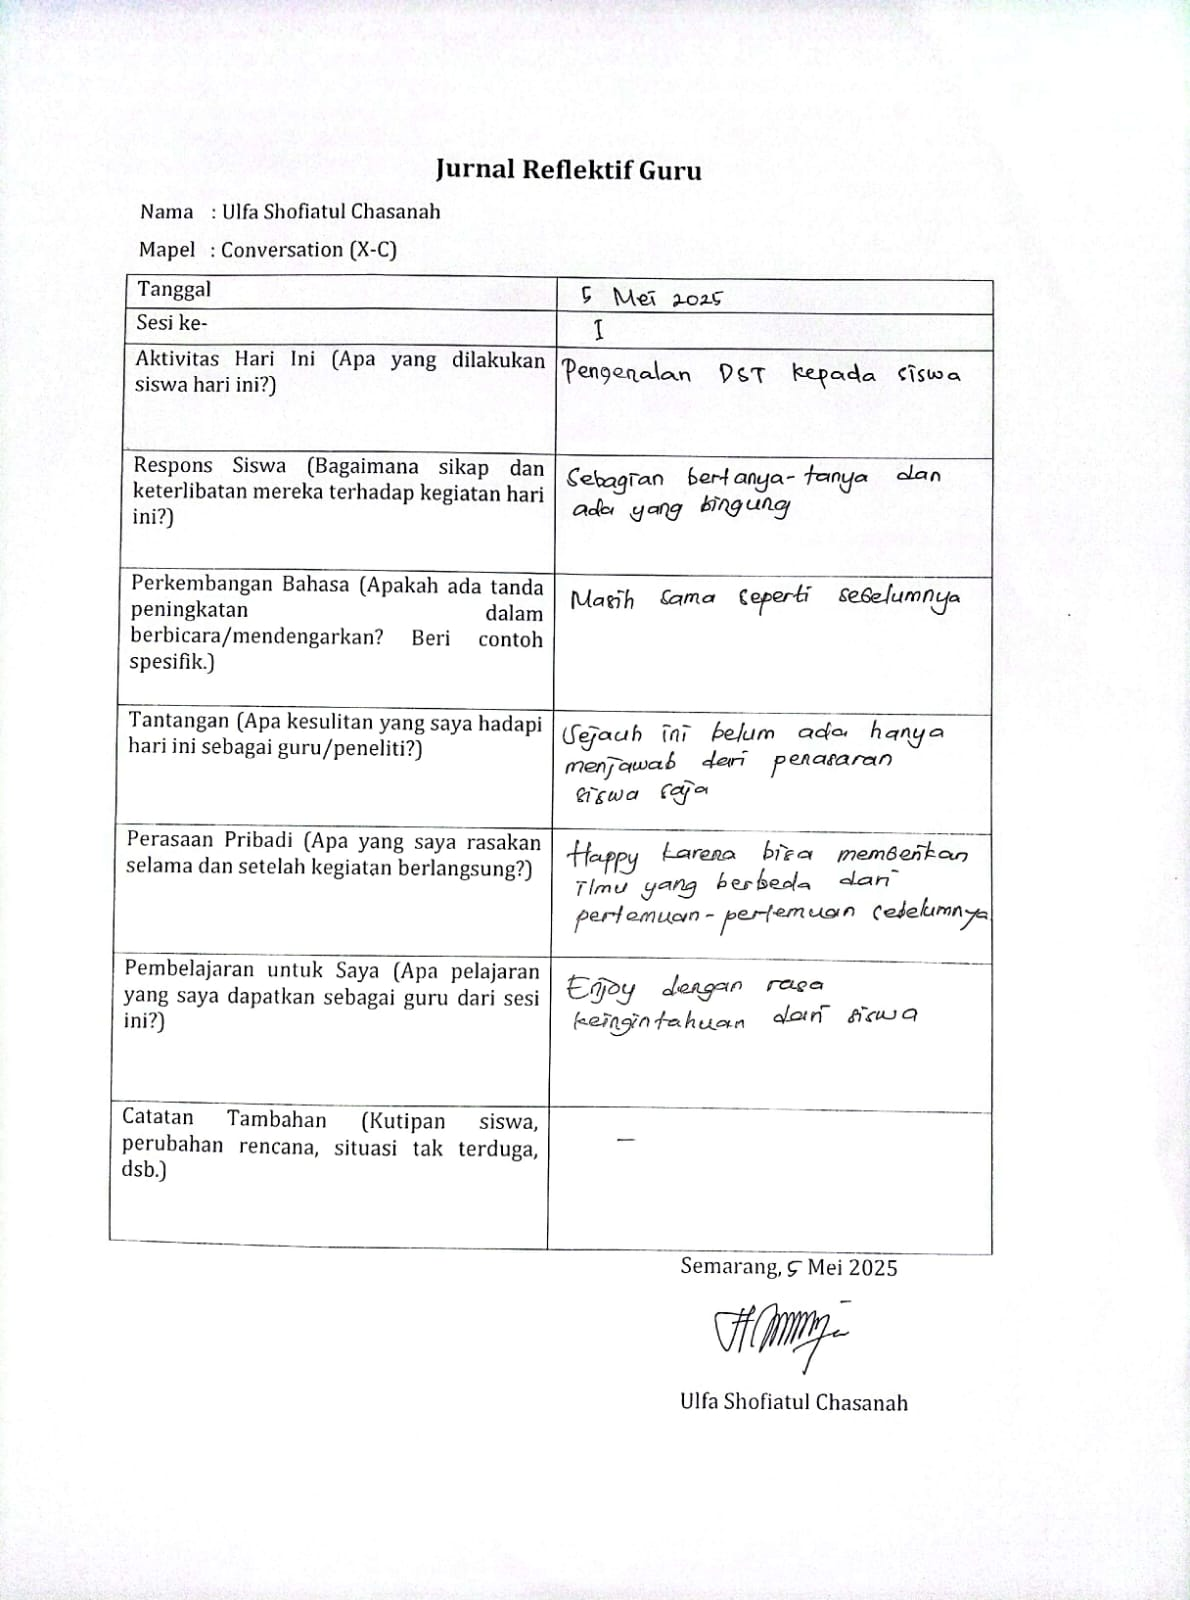 Jurnal Reflektif Guru
Nama : Ulfa Shofiatul Chasanah
Mapel : Conversation (X-C)
Tanggal
5 Mei 2025
Sesi ke-
I
Aktivitas Hari Ini (Apa yang dilakukan
siswa hari ini?)
Pengenalan DST kepada siswa
Respons Siswa (Bagaimana sikap dan
keterlibatan mereka terhadap kegiatan hari
ini?)
Sebagian bertanya-tanya dan
ada yang bingung
Perkembangan Bahasa (Apakah ada tanda
peningkatan dalam
berbicara/mendengarkan? Beri contoh
spesifik.)
Masih sama seperti sebelumnya
Tantangan (Apa kesulitan yang saya hadapi
hari ini sebagai guru/peneliti?)
Sejauh ini belum ada hanya
menjawab dari penasaran
siswa saja
Perasaan Pribadi (Apa yang saya rasakan
selama dan setelah kegiatan berlangsung?)
Happy karena bisa memberikan
ilmu yang berbeda dari
pertemuan-pertemuan sebelumnya
Pembelajaran untuk Saya (Apa pelajaran
yang saya dapatkan sebagai guru dari sesi
ini?)
Enjoy dengan rasa
keingintahuan dari siswa
Catatan Tambahan (Kutipan siswa,
perubahan rencana, situasi tak terduga,
dsb.)
–
Semarang, 5 Mei 2025
Ulfa Shofiatul Chasanah